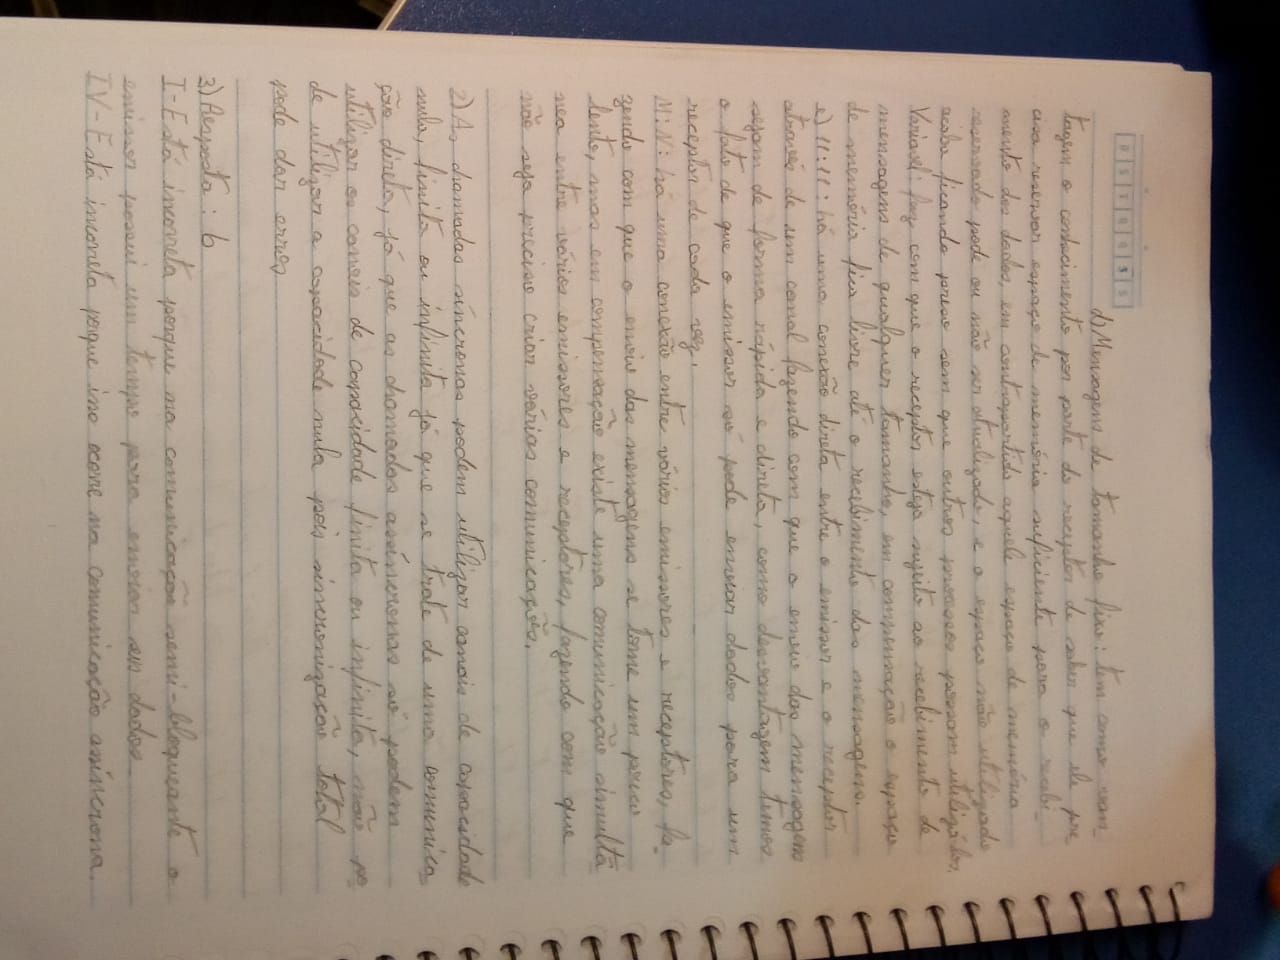 D S T Q Q S S
d) Mensagens de tamanho fixo: tem como van_
tagem o conhecimento por parte do receptor de saber que ele pre_
cisa reservar espaço de memória suficiente para o recebi_
mento dos dados, em contrapartida aquele espaço de memória
reservado pode ou não ser atualizado, e o espaço não utilizado
acaba ficando preso sem que outros processos possam utilizá-los.
Variavel: faz com que o receptor esteja sujeito ao recebimento de
mensagens de qualquer tamanho, em compensação o espaço
de memória fica livre até o recebimento das mensagens.
e) 11:11: há uma conexão direta entre o emissor e o receptor
através de um canal fazendo com que o envio das mensagens
sejam de forma rápida e direta, como desvantagem temos
o fato de que o emissor só pode enviar dados para um
receptor de cada vez.
M:N: há uma conexão entre vários emissores e receptores, fa_
zendo com que o envio das mensagens se torne um pouco
lento, mas em compensação existe uma comunicação simultâ
nea entre vários emissores e receptores, fazendo com que
não seja preciso criar várias comunicações.
2) As chamadas síncronas podem utilizar canais de capacidade
nula, finita ou infinita já que se trate de uma comunica_
ção direta, já que as chamadas assíncronas só podem
utilizar os canais de capacidade finita ou infinita, não po_
de utilizar a capacidade nula pois sincronização total
pode dar erros
3) Resposta: b
I-Está incorreta porque na comunicação semi-bloqueante o
emissor possui um tempo para enviar seus dados.
IV-Está incorreta porque isso ocorre na comunicação assíncrona.